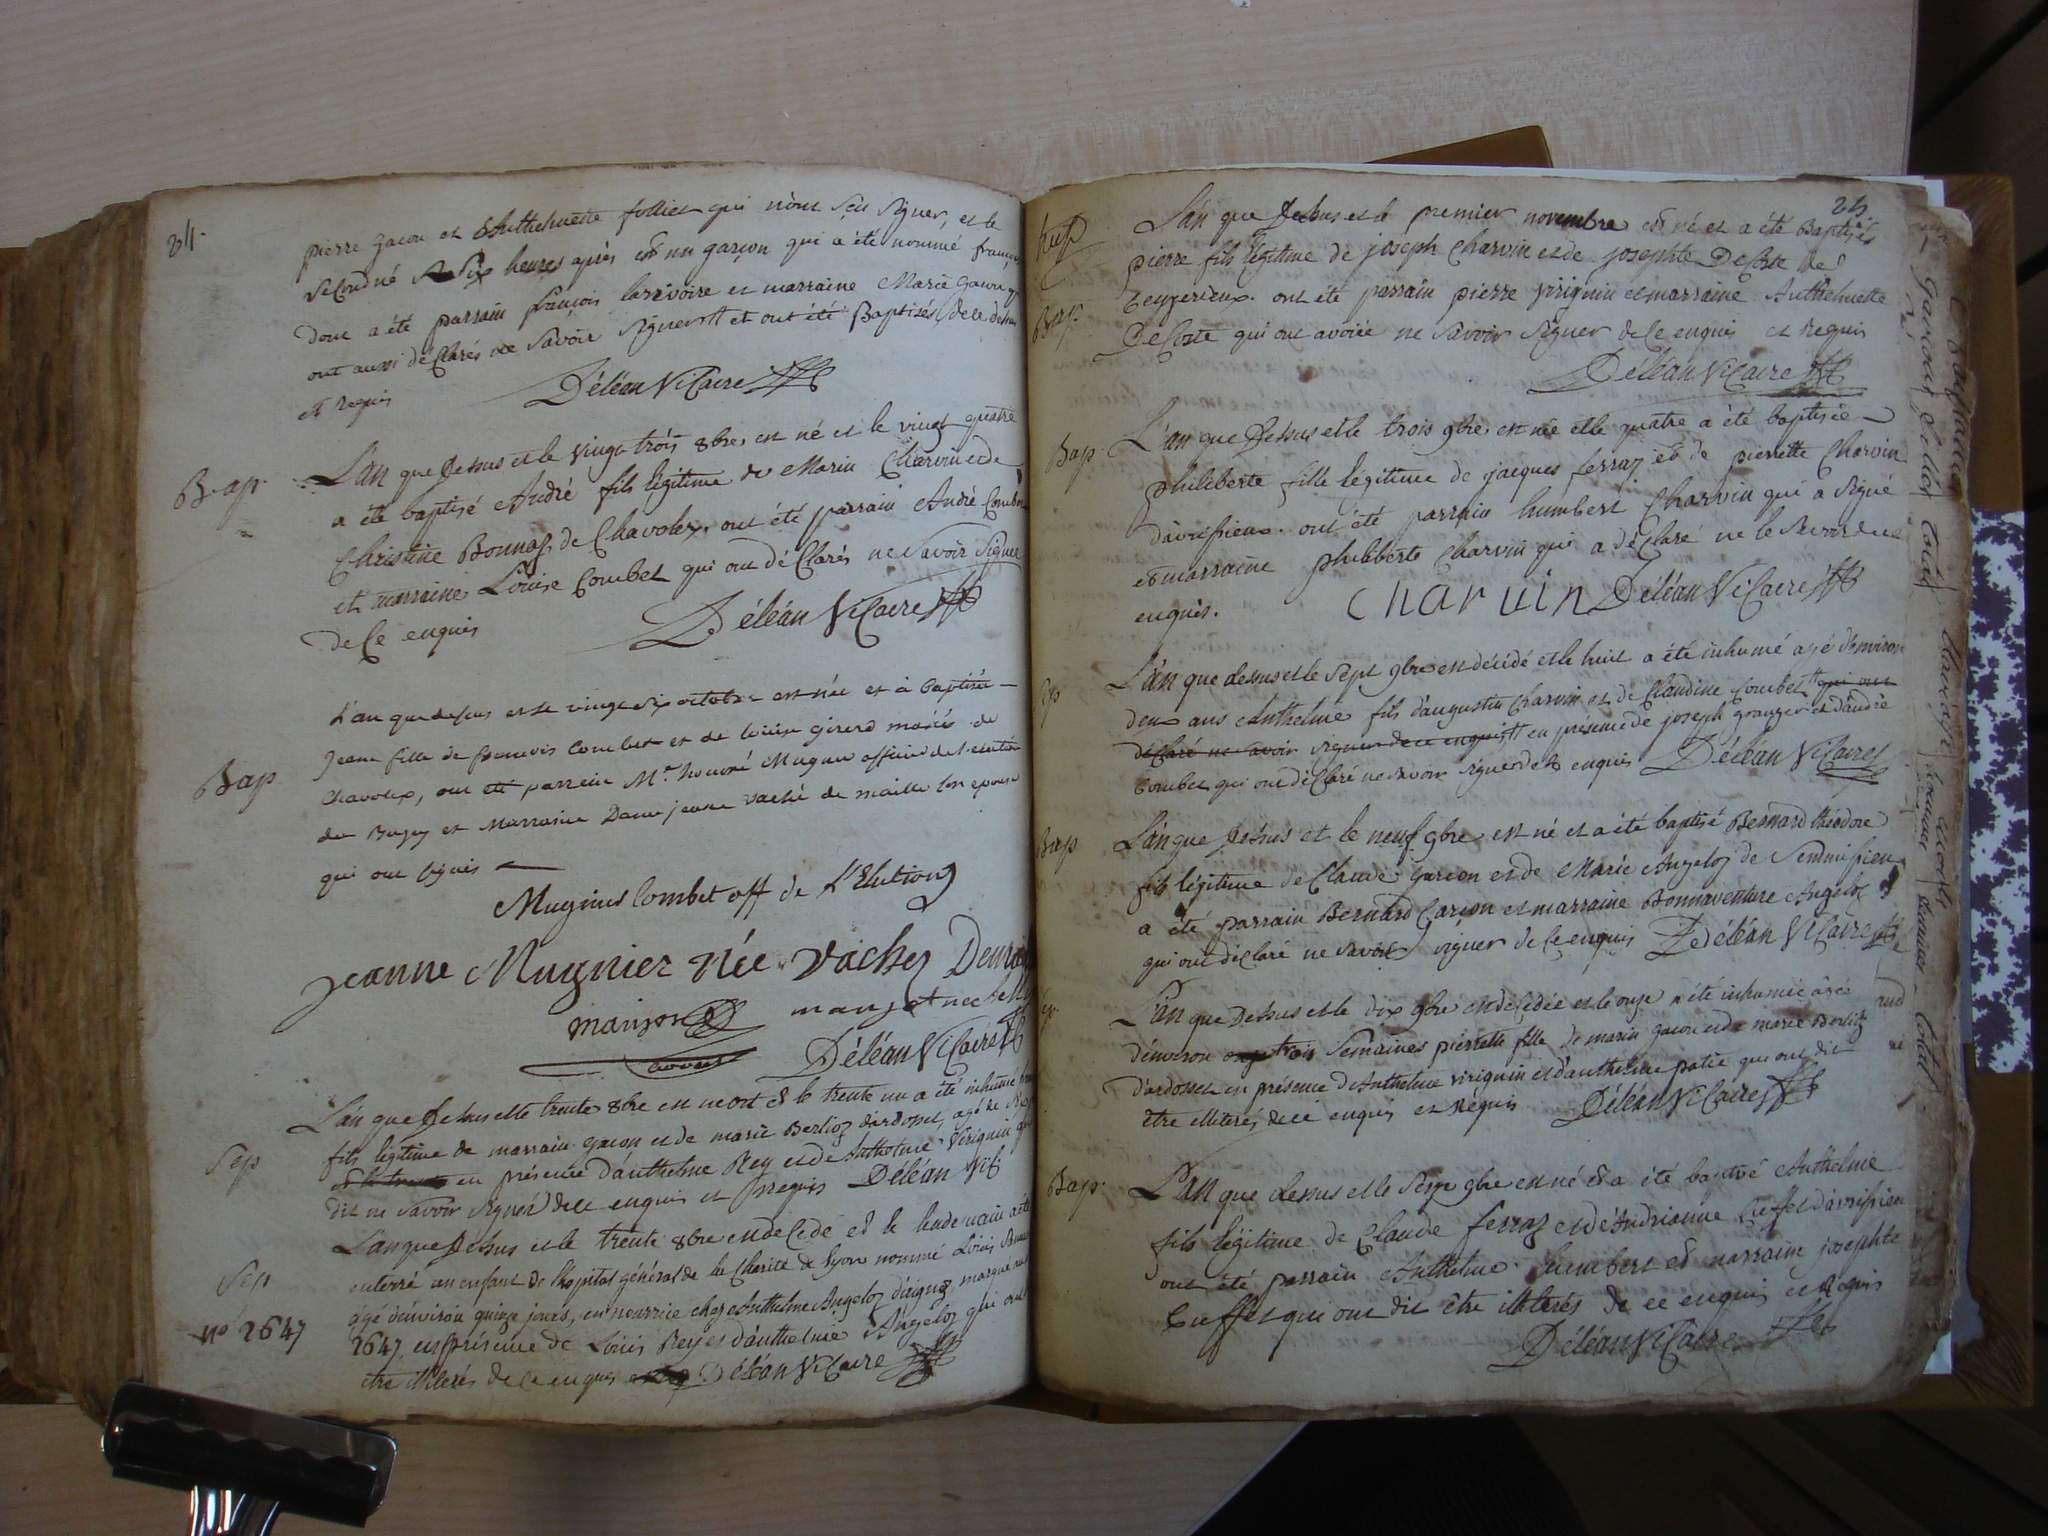 24.
pierre gacon et Anthelmette folliet qui n'ont sçu signer, et le
second né six heures après est un garçon qui a été nommé françois
dont a été parrain françois larrivoire et marraine Marie gacon
ont aussi déclarés ne savoir signer et ont été Baptisés de ce dessus
et requis Déléan Vicaire
Bap. L'an que dessus et le vingt trois 8bre est né et le vingt quatre
a été baptisé André fils légitime de Marin Charvin et de
Christine Bonnaz de Chavolex. ont été parrain André Combet
et marraine Louise Combet qui ont déclarés ne savoir signer
de ce enquis Déléan Vicaire
Bap L'an que dessus et le vingt six octobre est née et a baptisée
jeane fille de francois Combet et de louise girerd mariés de
Chavolex, ont été parrein Mr. honoré Mugnier officier de l'election
du Bugey et Marraine Dame jeane vaché de maille son epouse
qui ont signés
Mugnier Combet off de L'Election
jeanne Mugnier Née Vachez
Déléan Vicaire
Sep L'an que dessus et le trente 8bre est mort et le trente un a été inhumé
fils légitime de marrain gacon et de marie Berlioz d'ardosset, agé de
et le trente en présence d'anthelme Rey et de Anthelme Viriguin
dit ne savoir signer de ce enquis et requis Déléan Vic
Sep L'an que dessus et le trente 8bre est décédé et le lendemain a été
enterré un enfant de l'hopital général de la Charité de Lyon nommé Louis
âgé d'environ quinze jours, en nourrice chez Anthelme Angeloz d'aignoz, marqué
no 2647 2647. en présence de Louis Rey et d'anthelme Angeloz qui ont
être illiterés de ce enquis Déléan Vicaire
25
L'an que dessus et le premier novembre est né et a été Baptisé
pierre fils légitime de joseph Charvin et de josephte Decoste de
Bap. Ceyzerieux. ont été parrain pierre viriguin et marraine Anthelmette
Decoste qui ont avoüé ne savoir signer de ce enquis et Requis
Déléan Vicaire
Bap L'an que dessus et le trois 9bre est née et le quatre a été baptisée
philiberte fille légitime de jacques ferraz et de pierrette Charvin
d'avrissieux. ont été parrain humbert Charvin qui a signé
et marraine philiberte Charvin qui a déclaré ne le savoir de ce
enquis. Charvin Déléan Vicaire
Sep L'an que dessus et le sept 9bre est décédé et le huit a été inhumé agé d'environ
deux ans Anthelme fils d'augustin Charvin et de Claudine Combet qui ont
déclaré ne savoir signer de ce enquis en présence de joseph granger et d'andré
Combet qui ont déclaré ne savoir signer de ce enquis Déléan Vicaire
Bap L'an que dessus et le neuf 9bre est né et a été baptisé Bernard théodore
fils légitime de Claude garcon et de Marie Angeloz de Semmissieu
a été parrain Bernard Garçon et marraine Bonnaventure Angeloz
qui ont déclaré ne savoir signer de ce enquis Déléan Vicaire
Sep L'an que dessus et le dix 9bre est décédée et le onze a été inhumée agée
d'environ trois semaines pierrette fille de marin gacon et de marie Berlioz
d'ardosset en présence d'Anthelme viriguin et d'anthelme patie qui ont dit
être illiterés de ce enquis et Réquis Déléan Vicaire
Bap. L'an que dessus et le seize 9bre est né et a été baptisé Anthelme
fils légitime de Claude ferraz et d'Andrianne Cuffet d'avrissieu
ont été parrain Anthelme humbert et marraine josephte
Cuffet qui ont dit être illiterés de ce enquis et Requis
Déléan Vicaire